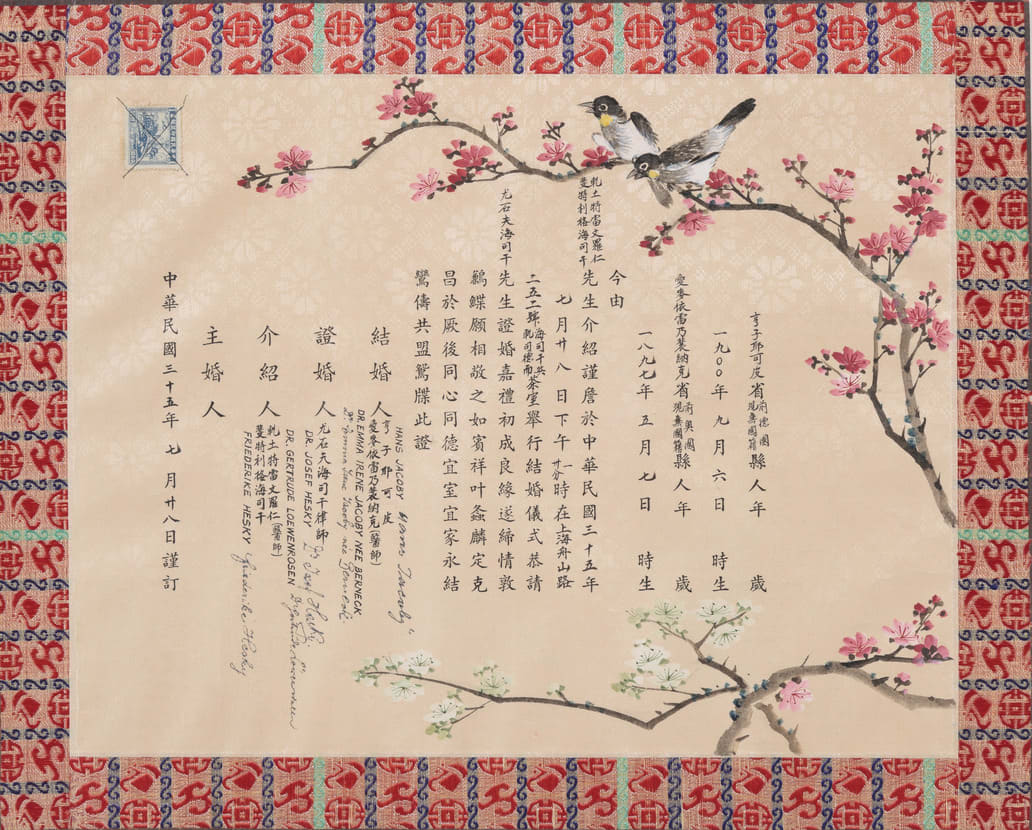 亨子耶可皮省前德國現無國籍縣人年 歲
一九〇〇年九月六日 時生
愛麥依雷乃裴納克省前奧國現無國籍縣人年 歲
一八九七年五月七日 時生
今由
乾士特雷文羅仁
蔓特利格海司干
先生介紹謹詹於中華民國三十五年
七月廿八日下午一廿分時在上海舟山路
二五二號海司干共
茶室舉行結婚儀式恭請
尤石夫海司干先生證婚嘉禮初成良緣遂締情敦
鶼鰈願相敬之如賓祥叶螽麟定克
昌於厥後同心同德宜室宜家永結
鸞儔共盟鴛牒此證
HANS JACOBY Hans Jacoby
結婚人亨子耶可皮
愛麥依雷乃裴納克(醫師)
DR. EMMA IRENE JACOBY NEE BERNECK
Dr. Emma Irene Jacoby nee Berneck
證婚人尤石夫海司干律師
DR. JOSEF HESKY Dr. Josef Hesky
DR. GERTRUDE LOEWENROSEN
介紹人乾士特雷文羅仁(醫師)
蔓特利格海司干
FRIEDERIKE HESKY Friederike Hesky
主婚人
中華民國三十五年七月廿八日謹訂